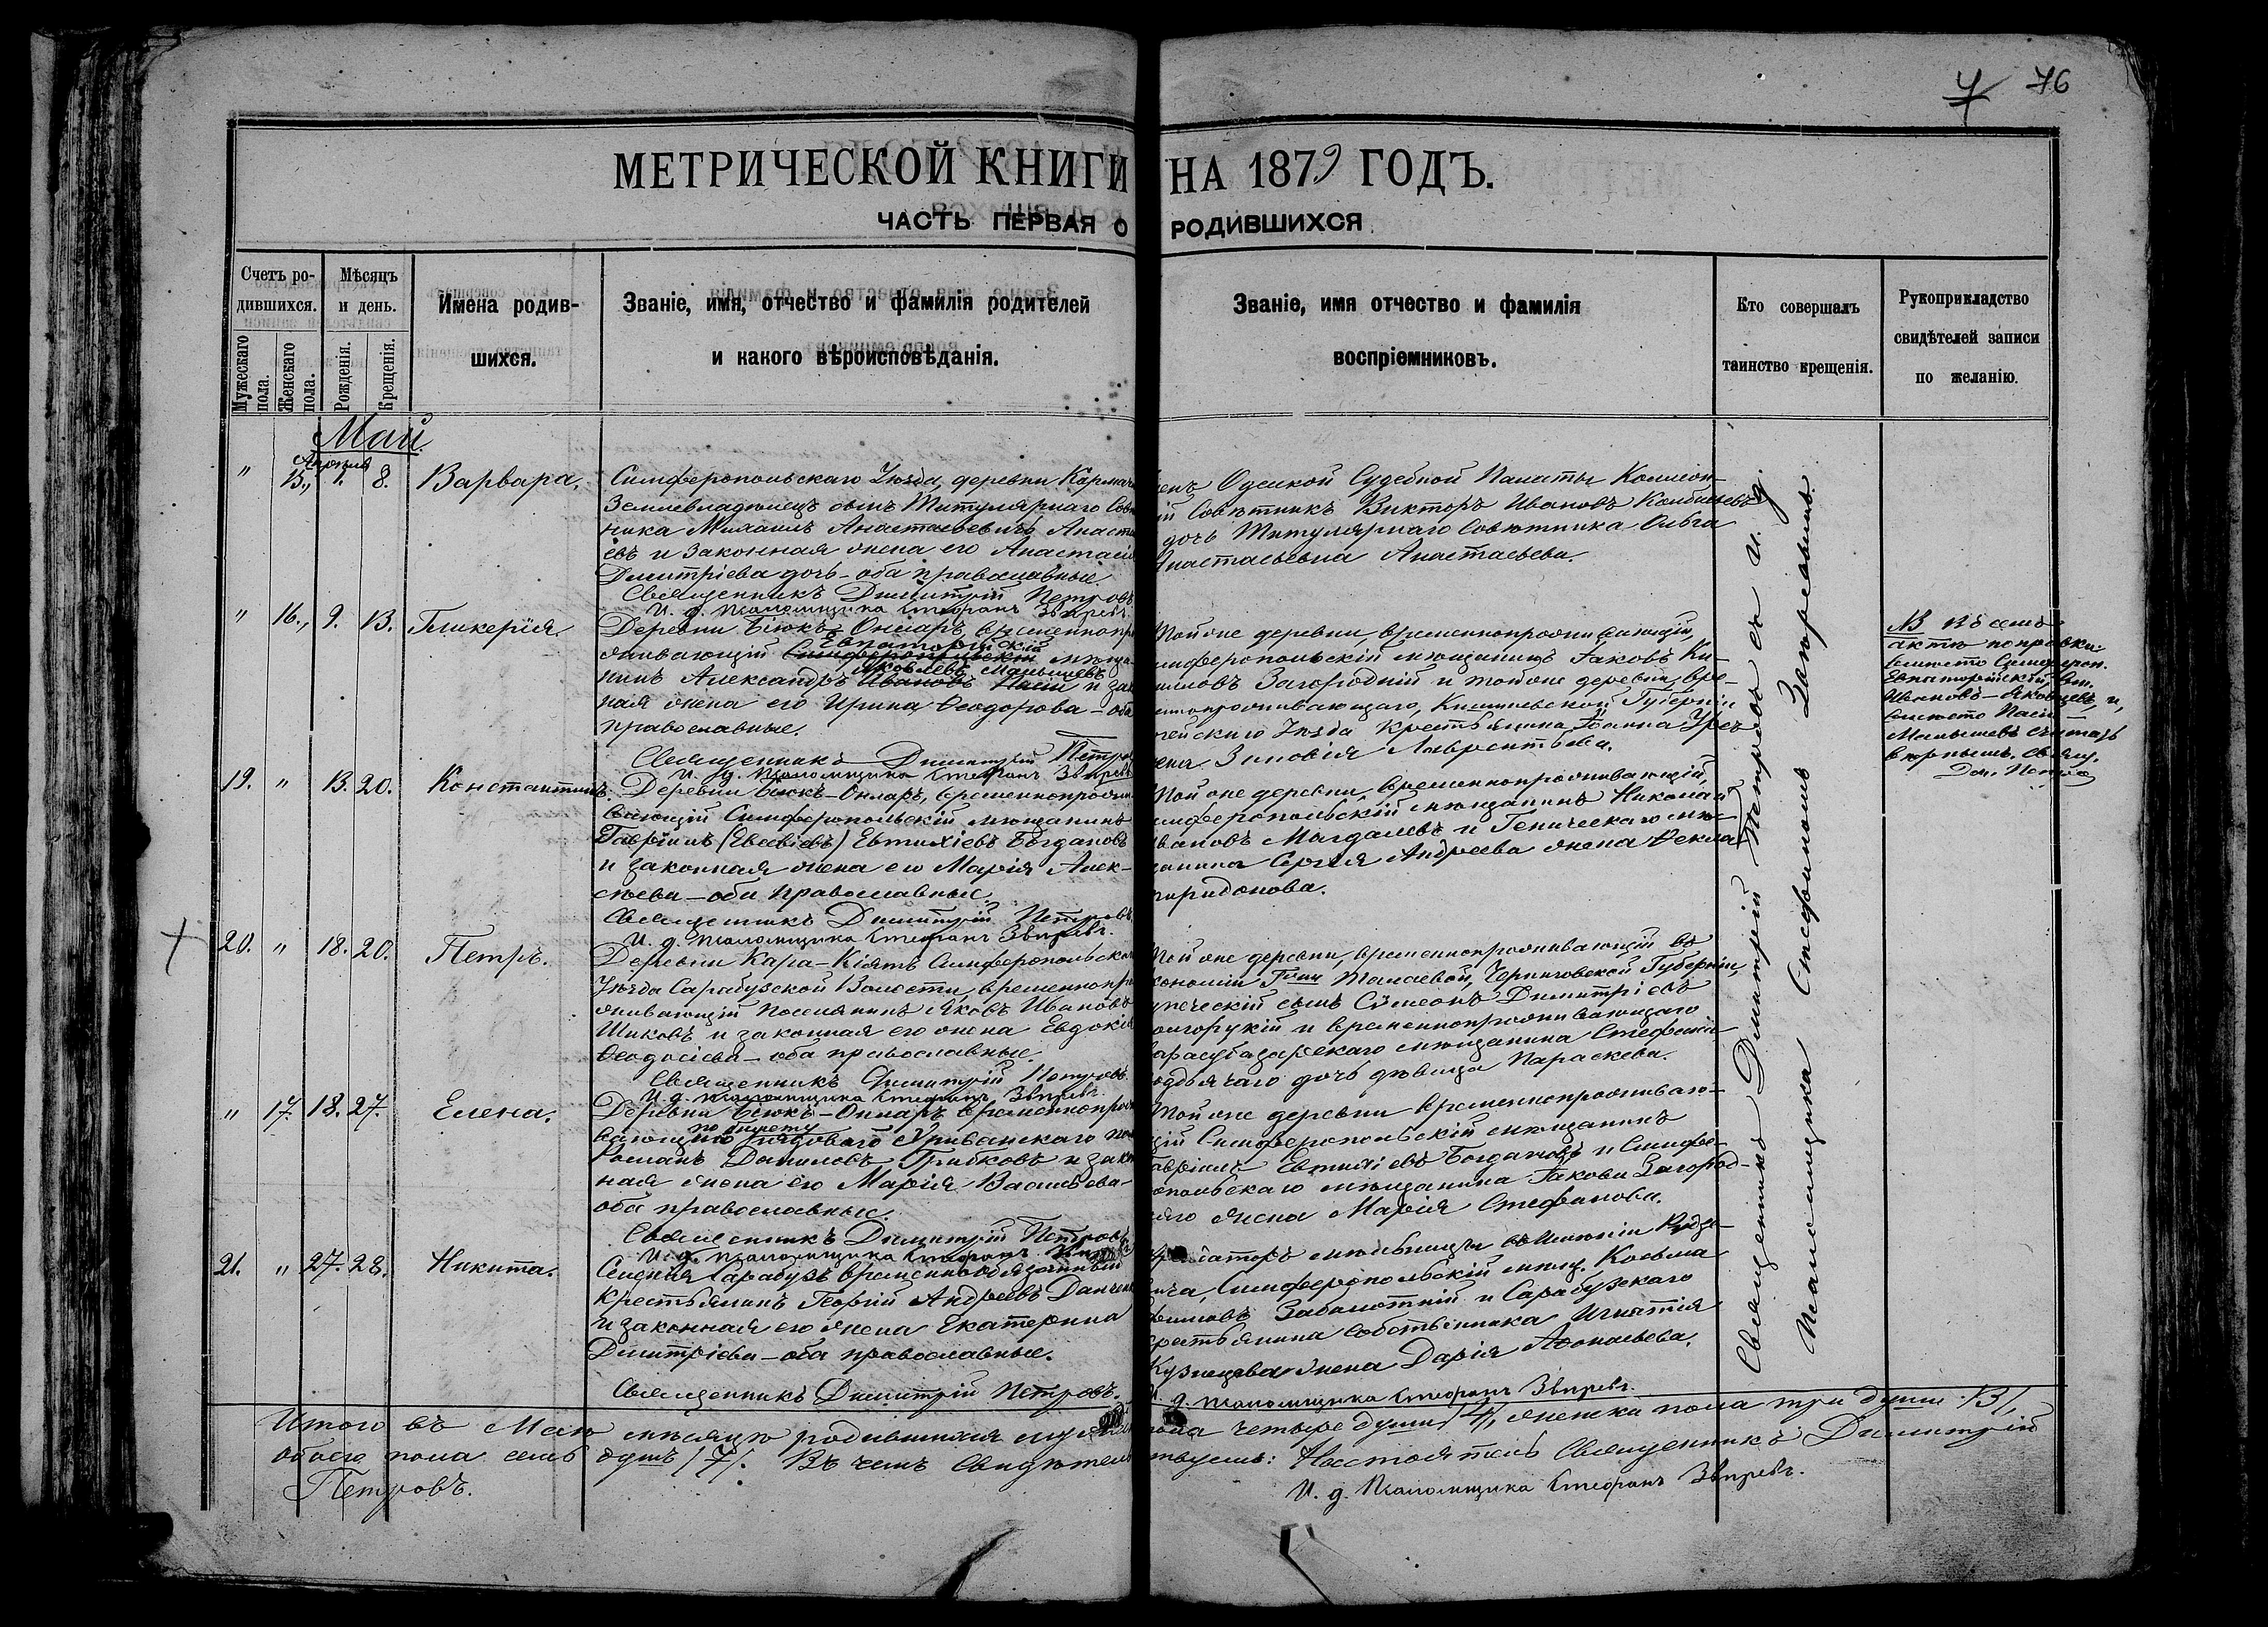 7 76
МЕТРИЧЕСКОЙ КНИГИ НА 1879 ГОДЪ.
ЧАСТЬ ПЕРВАЯ О РОДИВШИХСЯ
Счетъ родившихся.
Мужескаго пола.
Женскаго пола.
Мѣсяцъ и день.
Рожденія.
Крещенія.
Имена родив-
шихся.
Званіе, имя, отчество и фамилія родителей
и какого вѣроисповѣданія.
Званіе, имя отчество и фамилія
воспріемниковъ.
Кто совершалъ
таинство крещенія.
Рукоприкладство
свидѣтелей записи
по желанію.
Май.
Апрѣля
" 15,, 1. 8. Варвара.
Симферопольскаго Уѣзда, деревни
Землевладѣлецъ сынъ Титулярнаго Совѣ
ника Михаилъ Анастасьевичъ Анаста
евъ и законная жена его Анастасія
Димитріева дочь – оба православные.
Священникъ Димитрій Петровъ
И. д. Псаломщика Стефанъ Звѣревъ.
Одесской Судебной Палаты Коллеж-
ій Совѣтникъ Викторъ Ивановъ
дочь Титулярнаго Совѣтника Ольга
Анастасьевна Анастасьева.
" 16., 9. 13. Гликерія.
Деревни Біюкъ-Онларъ, временнопро
живающій Симферопольскій Евпаторійскій мѣща-
нинъ Александръ Ивановъ Яковлевъ Малышевъ и зак
ная жена его Ирина Ѳеодорова – оба
православные.
Священникъ Димитрій Петровъ
И. д. Псаломщика Стефанъ Звѣревъ
Той же деревни, временнопроживающій,
имферопольскій мѣщанинъ Іаковъ Ки-
илловъ Загородній и той же деревни, вре-
меннопроживающаго, Кишиневской Губерніи
ейскаго Уѣзда крестьянина Іоанна
жена Зиновія Лаврентьева.
NB Въ семъ
актѣ поправки:
вмѣсто Симфероп.
Евпаторійскій, вм.
Ивановъ – Яковлевъ, и,
вмѣсто
Малышевъ считать
вѣрнымъ. Свящ.
Дим. Петровъ
19. " 13. 20. Константинъ.
Деревни Біюкъ-Онларъ, временнопрожи
вающій Симферопольскій мѣщанинъ
Гавріилъ (Евсевіевъ) Евтихіевъ Богдановъ
и законная жена его Марія Алек-
сѣева – оба православные.
Священникъ Димитрій Петровъ
И. д. Псаломщика Стефанъ Звѣревъ.
Той же деревни, временнопроживающій,
имферопольскій мѣщанинъ Николай
Ивановъ и Геническаго мѣ-
щанина Сергія Андреева жена Ѳекла
пиридонова.
20. " 18. 20. Петръ.
Деревни Кара-Кіятъ Симферопольска
Уѣзда Сарабузской Волости, временнопро
живающій поселянинъ Яковъ Ивановъ
Шиковъ и законная его жена Евдокія
Ѳеодосіева – оба православные.
Священникъ Димитрій Петровъ.
И. д. Псаломщика Стефанъ Звѣревъ.
Той же деревни, временнопроживающій въ
экономіи Г-жи Черниговской Губерніи,
купеческій сынъ Сѵмеонъ Димитріевъ
олгорукій и временнопроживающаго
арасубазарскаго мѣщанина Стефана
одьячаго дочь дѣвица Параскева.
" 17. 18. 27. Елена.
Деревни Біюкъ-Онларъ временнопрож
вающій по билету рядоваго
Романъ Даниловъ Грибковъ и зак
ная жена его Марія Васильева –
оба православные.
Священникъ Димитрій Петровъ
И. д. Псаломщика Стефанъ Звѣревъ
Той же деревни временнопроживаю-
щій Симферопольскій мѣщанинъ
Гавріилъ Евтихіевъ Богдановъ и Симфе-
ропольскаго мѣщанина Іакова Загород-
няго жена Марія Стефанова.
21. " 27. 28. Никита.
Селенія Сарабузъ временнообязанный
крестьянинъ Георгій Андреевъ Данчен
и законная его жена Екатерина
Димитріева – оба православные.
Священникъ Димитрій Петровъ.
Симферопольскій мѣщ. Косьма
Заболотній и Сарабузскаго
крестьянина собственника Игнатія
Кузнецова жена Дарія Аѳонасьева.
И. д. Псаломщика Стефанъ Звѣревъ.
Священникъ Димитрій Петровъ съ и. д.
Псаломщика Стефаномъ Звѣревымъ.
Итого въ Маѣ мѣсяцѣ родившихся муж пола четыре души /4/, женска пола три души /3/,
обоего пола семь душъ /7/. Въ чемъ свидѣтельствуемъ: Настоятель Священникъ Димитрій
Петровъ.
И. д. Псаломщика Стефанъ Звѣревъ.